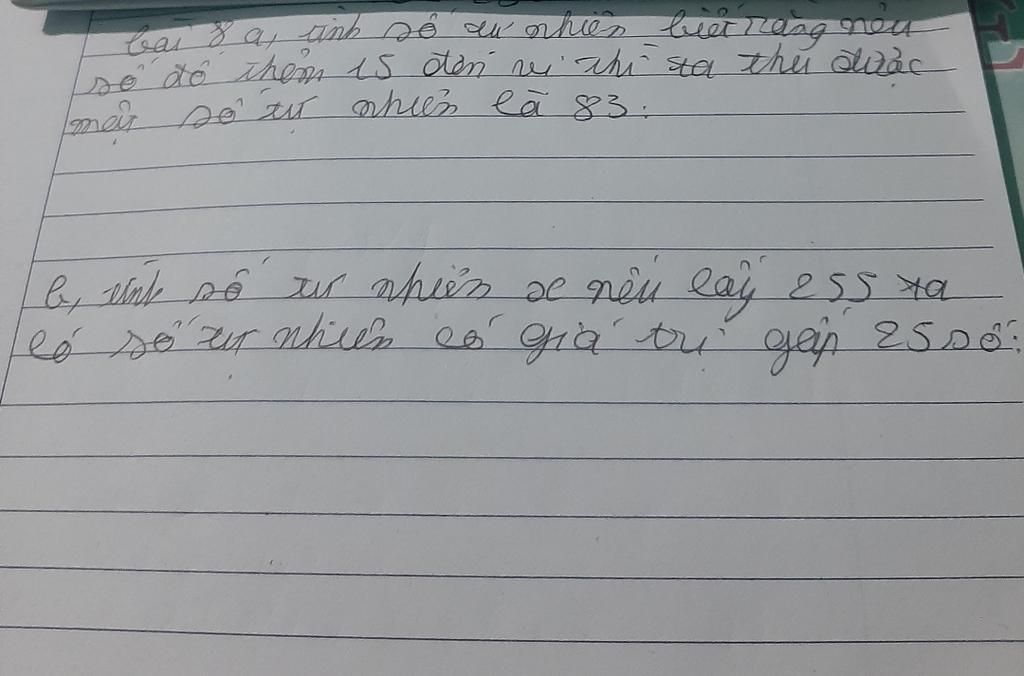 bài 8 a, tính số tự nhiên biết rằng nếu
số đó thêm 15 đơn vị thì ta thu được
một số tự nhiên là 83.
b, tính số tự nhiên x nếu lấy 255 ta
có số tự nhiên có giá trị gấp 25 số.